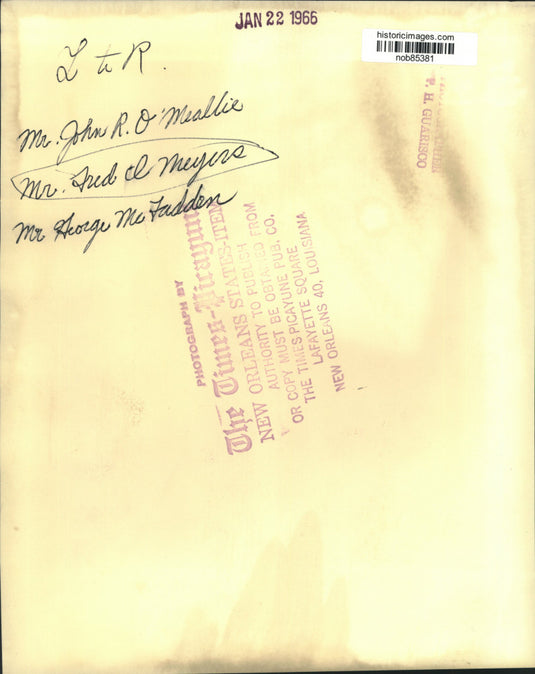 JAN 22 1966
historicimages.com
nob85381
L to R.
Mr. John R. O'Meallie
Mr. Fred I Meyers
Mr George McFadden
P. H. GUARISCO
PHOTOGRAPH BY
The Times-Picayune
NEW ORLEANS STATES-ITEM
AUTHORITY TO PUBLISH
OR COPY MUST BE OBTAINED FROM
THE TIMES-PICAYUNE PUB. CO.
LAFAYETTE SQUARE
NEW ORLEANS 40, LOUISIANA